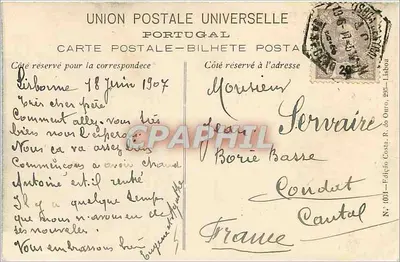 UNION POSTALE UNIVERSELLE
PORTUGAL
CARTE POSTALE - BILHETE POSTAL
Côté réservé pour la correspondece
Côté réservé à l'adresse
Lisbonne 18 Juin 1907
Très cher père
Comment allez vous très
bien nous l'espérons
Nous ca va assez bien
Commençons a avoir chaud
Antoine est-il rentré
Il y a quelque temps
que nous n'avons eu de
ses nouvelles.
Vous embrassons bien
Eugene et Agathe
Monsieur
Jean Servaire
Borie Basse
Condat
Cantal
France
N.º 1031—Edição Costa, R. do Ouro, 295—Lisboa
CPAPHIL